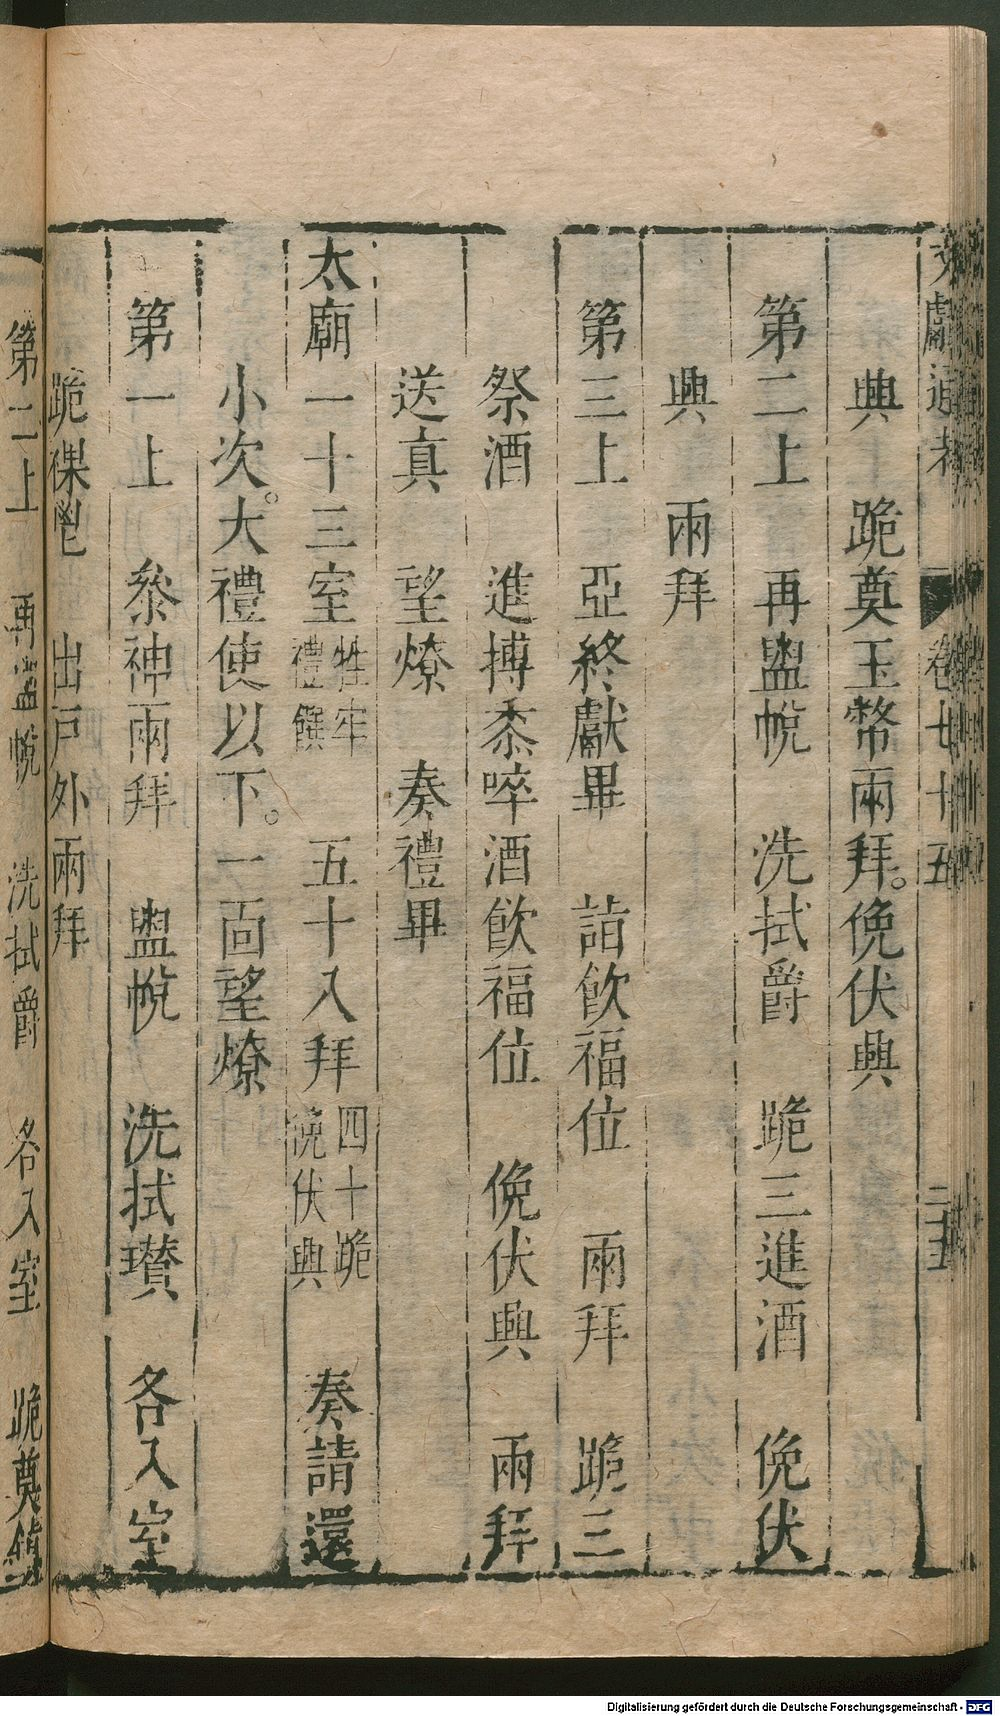 文獻通考 卷七十五 二五
興 跪奠玉幣兩拜。俛伏興
第二上 再盥帨 洗拭爵 跪三進酒 俛伏
興 兩拜
第三上 亞終獻畢 詣飲福位 兩拜 跪三
祭酒 進搏黍啐酒飲福位 俛伏興 兩拜
送真 望燎 奏禮畢
太廟一十三室牲牢禮饌 五十八拜四十跪俛伏興 奏請還
小次。大禮使以下。一面望燎
第一上 叅神兩拜 盥帨 洗拭瓚 各入室
跪祼鬯 出戸外兩拜
第二上 再盥帨 洗拭爵 各入室 跪奠
Digitalisierung gefördert durch die Deutsche Forschungsgemeinschaft - DFG